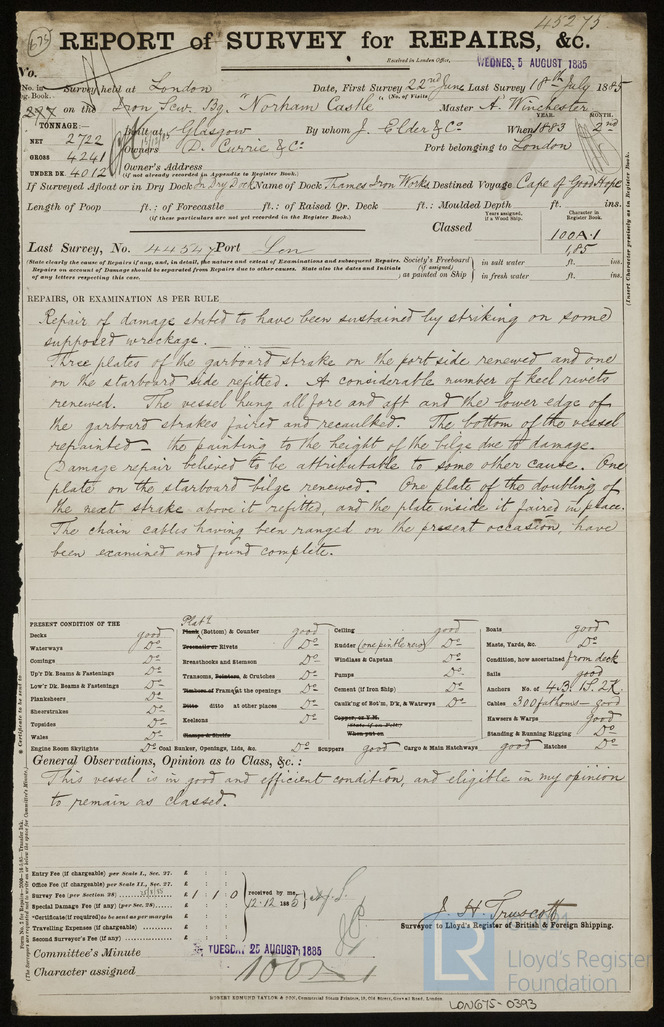 45275
675
REPORT of SURVEY for REPAIRS, &c.
Received in London Office, WEDNES. 5 AUGUST 1885
No.
No. in Reg. Book. Survey held at London Date, First Survey 22nd June Last Survey 18th July 1885
(No. of Visits)
on the Iron Scw. Bg. "Norham Castle" Master A. Winchester
TONNAGE:— Built at Glasgow By whom J. Elder & Co When 1883 2nd
YEAR. MONTH.
NET 2722 Owners D. Currie & Co Port belonging to London
GROSS 4241 Owner's Address
(if not already recorded in Appendix to Register Book.)
UNDER DK. 4012
If Surveyed Afloat or in Dry Dock In Dry Dock Name of Dock Thames Iron Works Destined Voyage Cape of Good Hope
Length of Poop ft.: of Forecastle ft.: of Raised Qr. Deck ft.: Moulded Depth ft. ins.
(if these particulars are not yet recorded in the Register Book.)
Years assigned, if a Wood Ship. Character in Register Book.
Classed 100A.1
1,85
(Insert Character precisely as in Register Book.)
Last Survey, No. 44547 Port Lon
(State clearly the cause of Repairs if any, and, in detail, the nature and extent of Examinations and subsequent Repairs.
Repairs on account of Damage should be separated from Repairs due to other causes. State also the dates and Initials
of any letters respecting this case.
Society's Freeboard (if assigned) as painted on Ship in salt water ft. ins.
in fresh water ft. ins.
REPAIRS, OR EXAMINATION AS PER RULE
Repair of damage stated to have been sustained by striking on some
supposed wreckage.
Three plates of the garboard strake on the port side renewed and one
on the starboard side refitted. A considerable number of keel rivets
renewed. The vessel hung all fore and aft and the lower edge of
the garboard strakes faired and recaulked. The bottom of the vessel
repainted – the painting to the height of the bilge due to damage.
Damage repair believed to be attributable to some other cause. One
plate on the starboard bilge renewed. One plate of the doubling of
the next strake above it refitted, and the plate inside it faired in place.
The chain cables having been ranged on the present occasion, have
been examined and found complete.
PRESENT CONDITION OF THE
Decks good
Waterways Do
Comings Do
Up'r Dk. Beams & Fastenings Do
Low'r Dk. Beams & Fastenings Do
Planksheers Do
Sheerstrakes Do
Topsides Do
Wales Do
Engine Room Skylights Do
Plat'g
Plank (Bottom) & Counter good
Treenails or Rivets Do
Breasthooks and Stemson Do
Transoms, Pointers, & Crutches Do
Timbers of Frame at the openings Do
Ditto ditto at other places Do
Keelsons Do
Clamps & Shelfs
Coal Bunker, Openings, Lids, &c. Do
Ceiling good
Rudder (one pintle new) Do
Windlass & Capstan Do
Pumps Do
Cement (if Iron Ship) Do
Caulk'ng of Bot'm, D'k, & Watrwys Do
Copper, or Y.M.
(State if on Felt)
When put on
Scuppers good Cargo & Main Hatchways good Hatches Do
Boats good
Masts, Yards, &c. Do
Condition, how ascertained from deck
Sails good
Anchors No. of 4 B. 1 S. 2 K.
Cables 300 fathoms – good
Hawsers & Warps good
Standing & Running Rigging Do
General Observations, Opinion as to Class, &c.:
This vessel is in good and efficient condition, and eligible in my opinion
to remain as classed.
Entry Fee (if chargeable) per Scale I., Sec. 27. £ : :
Office Fee (if chargeable) per Scale II., Sec. 27. £ : :
Survey Fee (per Section 28) 25/8/85 £ 1 : 1 : 0
Special Damage Fee (if any) (per Sec. 28) £ : :
*Certificate (if required) to be sent as per margin
Travelling Expenses (if chargeable) £ : :
Second Surveyor's Fee (if any) £ : :
received by me,
12.12 1885
J. H. Truscott
Surveyor to Lloyd's Register of British & Foreign Shipping.
Committee's Minute TUESDAY 25 AUGUST 1885
Character assigned 100A1
ROBERT EDMUND TAYLOR & SON, Commercial Steam Printers, 19, Old Street, Goswell Road, London.
© 2021
LR
Lloyd's Register
Foundation
LON675-0393